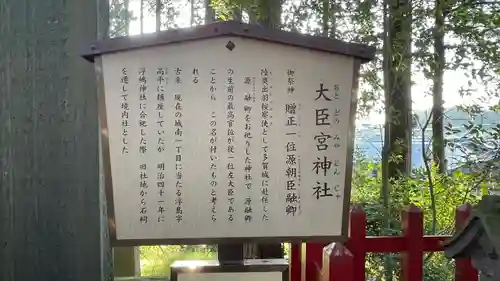 大臣宮神社
おとどのみやじんじゃ
御祭神　贈正一位源朝臣融卿
陸奥出羽按察使として多賀城に赴任した
源融卿をお祀りした神社で　源融卿
の生前の最高官位が従一位左大臣である
ことから　この名が付いたものと考えら
れる
古来　現在の城南一丁目に当たる浮島字
高平に鎮座していたが　明治四十一年に
浮嶋神社に合祀した際　旧社地から石祠
を遷して境内社とした